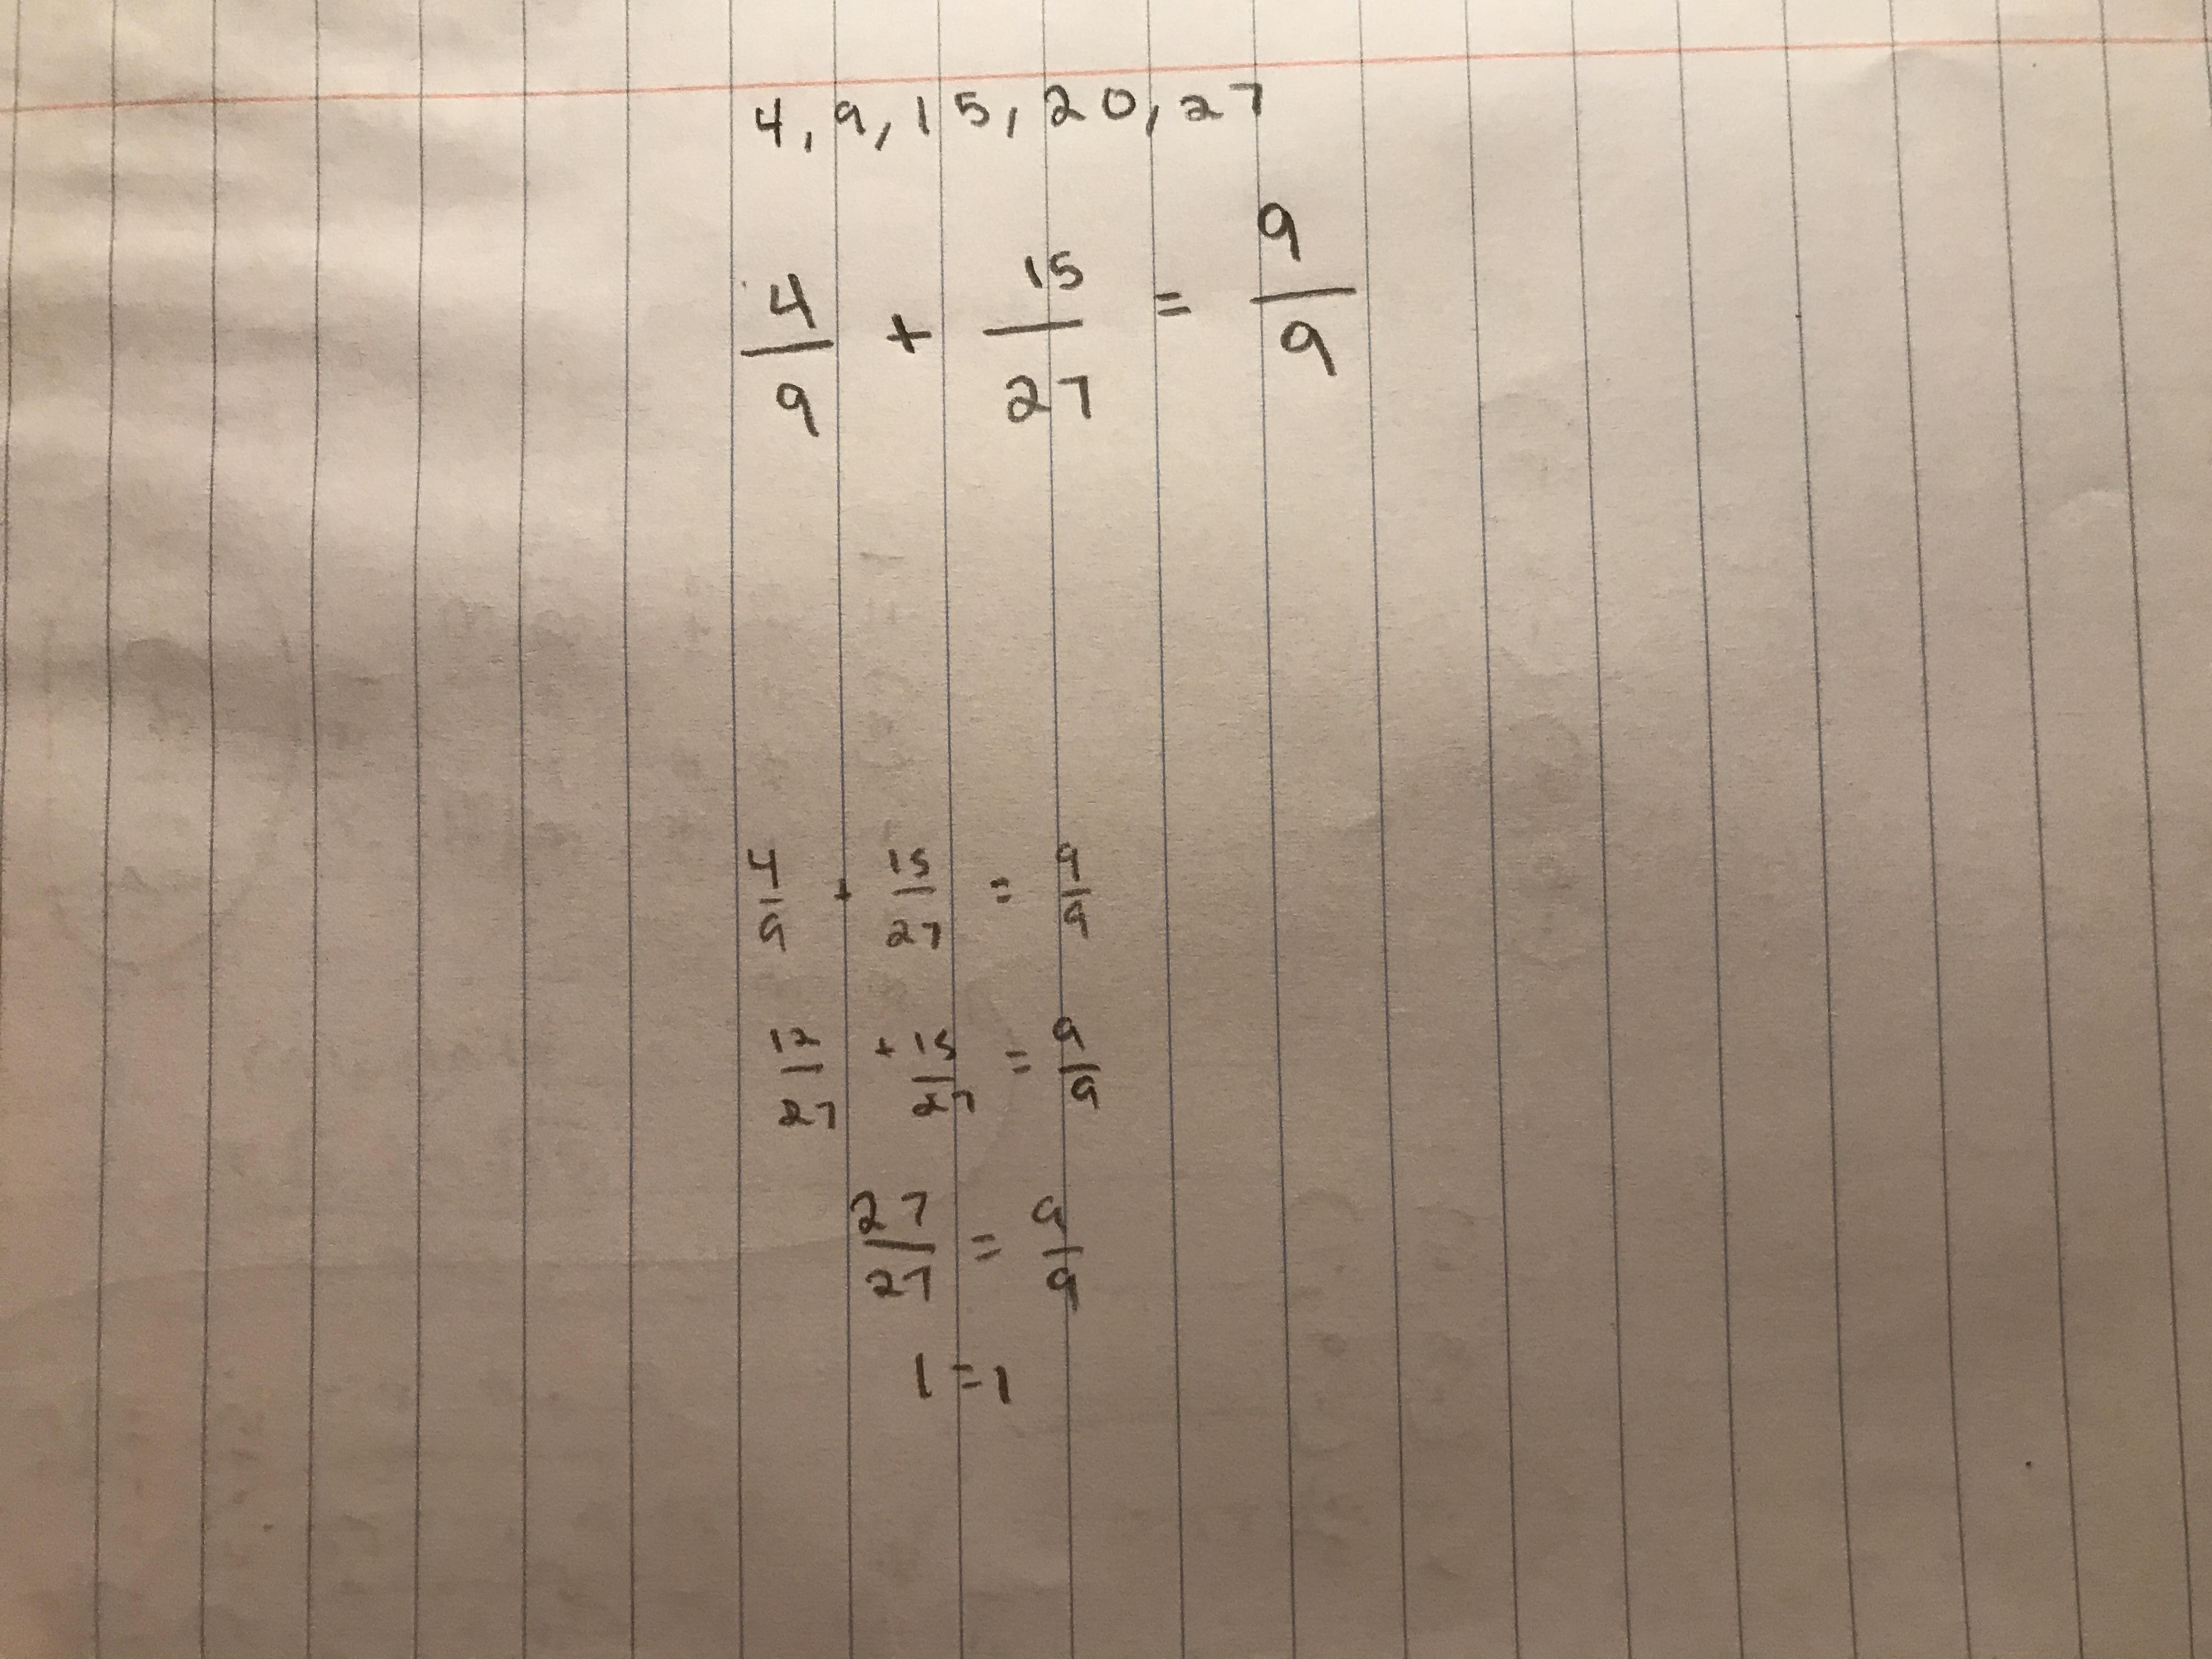 4, 9, 15, 20, 27
4/9 + 15/27 = 9/9
4/9 + 15/27 = 9/9
12/27 + 15/27 = 9/9
27/27 = 9/9
1 = 1